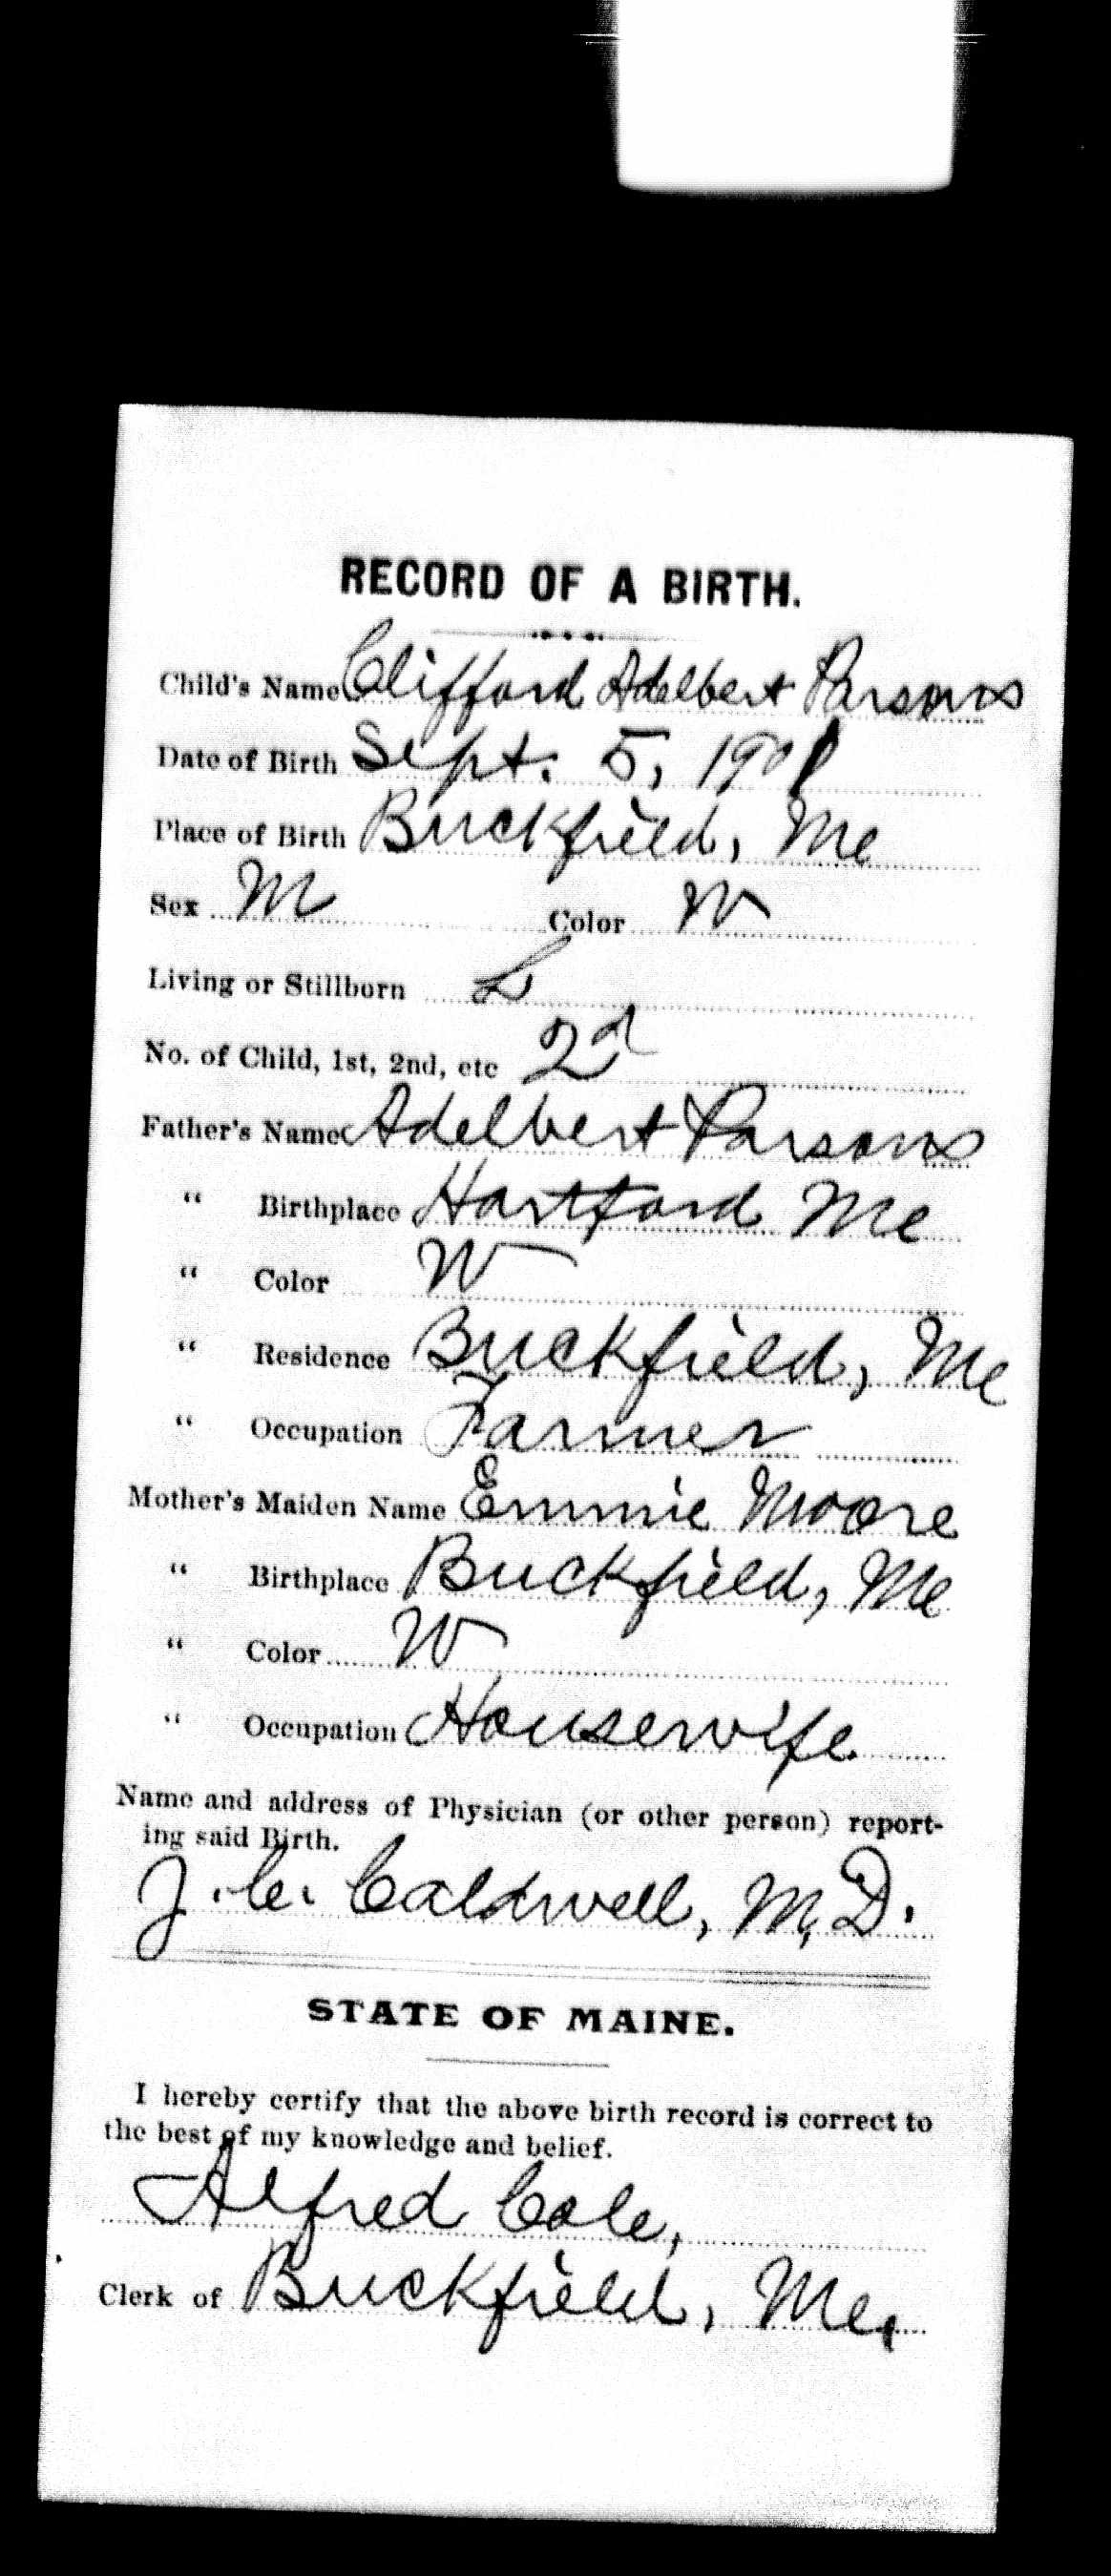 RECORD OF A BIRTH.
Child's Name Clifford Adelbert Parsons
Date of Birth Sept. 5, 1901
Place of Birth Buckfield, Me
Sex M Color W
Living or Stillborn L
No. of Child, 1st, 2nd, etc 2d
Father's Name Adelbert Parsons
" Birthplace Hartford Me
" Color W
" Residence Buckfield, Me
" Occupation Farmer
Mother's Maiden Name Emmie Moore
" Birthplace Buckfield, Me
" Color W
" Occupation Housewife
Name and address of Physician (or other person) report-
ing said Birth.
J. C. Caldwell, M, D.
STATE OF MAINE.
I hereby certify that the above birth record is correct to
the best of my knowledge and belief.
Alfred Cole,
Clerk of Buckfield, Me,